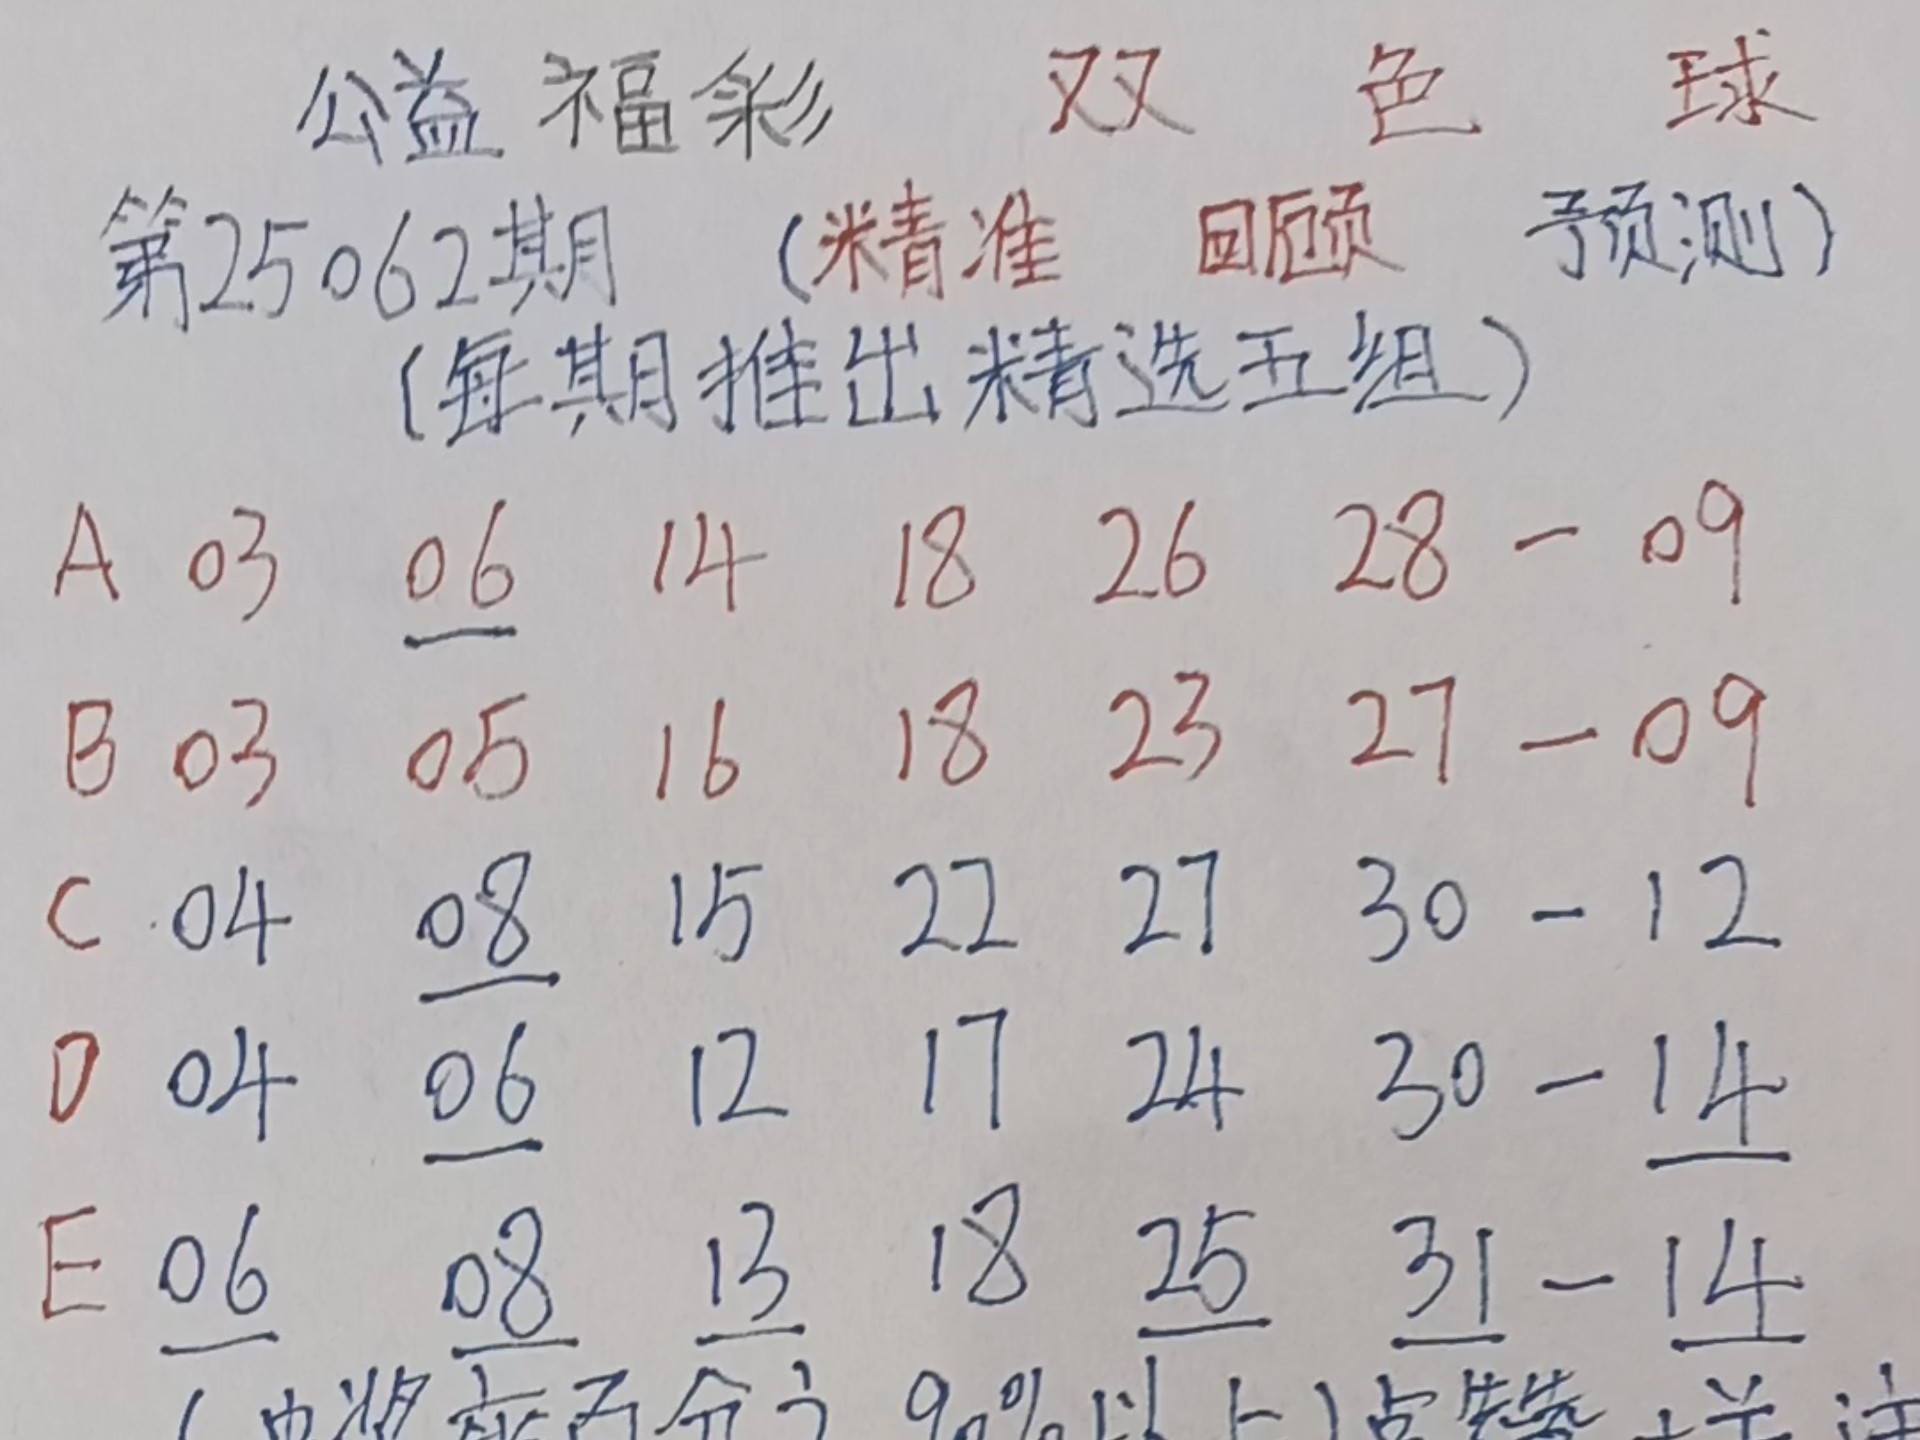 公益福彩 双色球
第25062期 (精准 回顾 预测)
(每期推出精选五组)
A 03 06 14 18 26 28 - 09
B 03 05 16 18 23 27 - 09
C 04 08 15 22 27 30 - 12
D 04 06 12 17 24 30 - 14
E 06 08 13 18 25 31 - 14
(中奖率百分之90%以上)点赞+关注